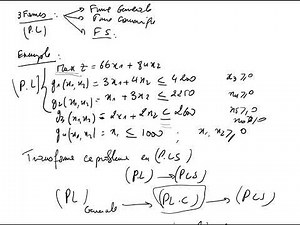 3 Formes:
Forme Generale
(P.L)
Forme Canonique
F S.
Example:
(P.L)
Max Z = 66x1 + 84x2
g1(x1,x2) = 3x1 + 4x2 ≤ 4200 x3 ≥ 0
g2(x1,x2) = x1 + 3x2 ≤ 2250 x4 ≥ 0
g3(x1,x2) = 2x1 + 2x2 ≤ 2600 x5 ≥ 0
g4(x1,x2) = x1 ≤ 1000; x1, x2 ≥ 0
Transforme ce problème en (P.L.S)
(PL) → (PLS)
(PL) Generale → (PL.C) → (PLS)